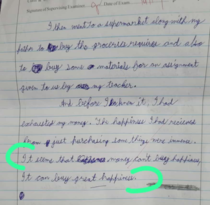 I then went to a supermarket along with my
to buy the groceries required and also
to buy some materials for an assignment
given to us by my teacher.
And before I know it, I had
exhausted my money. The happiness I had received
from just purchasing some things was immense.
It seems that money can't buy happiness,
It can buy great happiness.